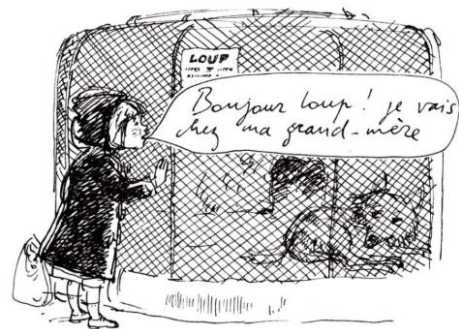 LOUP
Bonjour loup! je vais
chez ma grand-mère